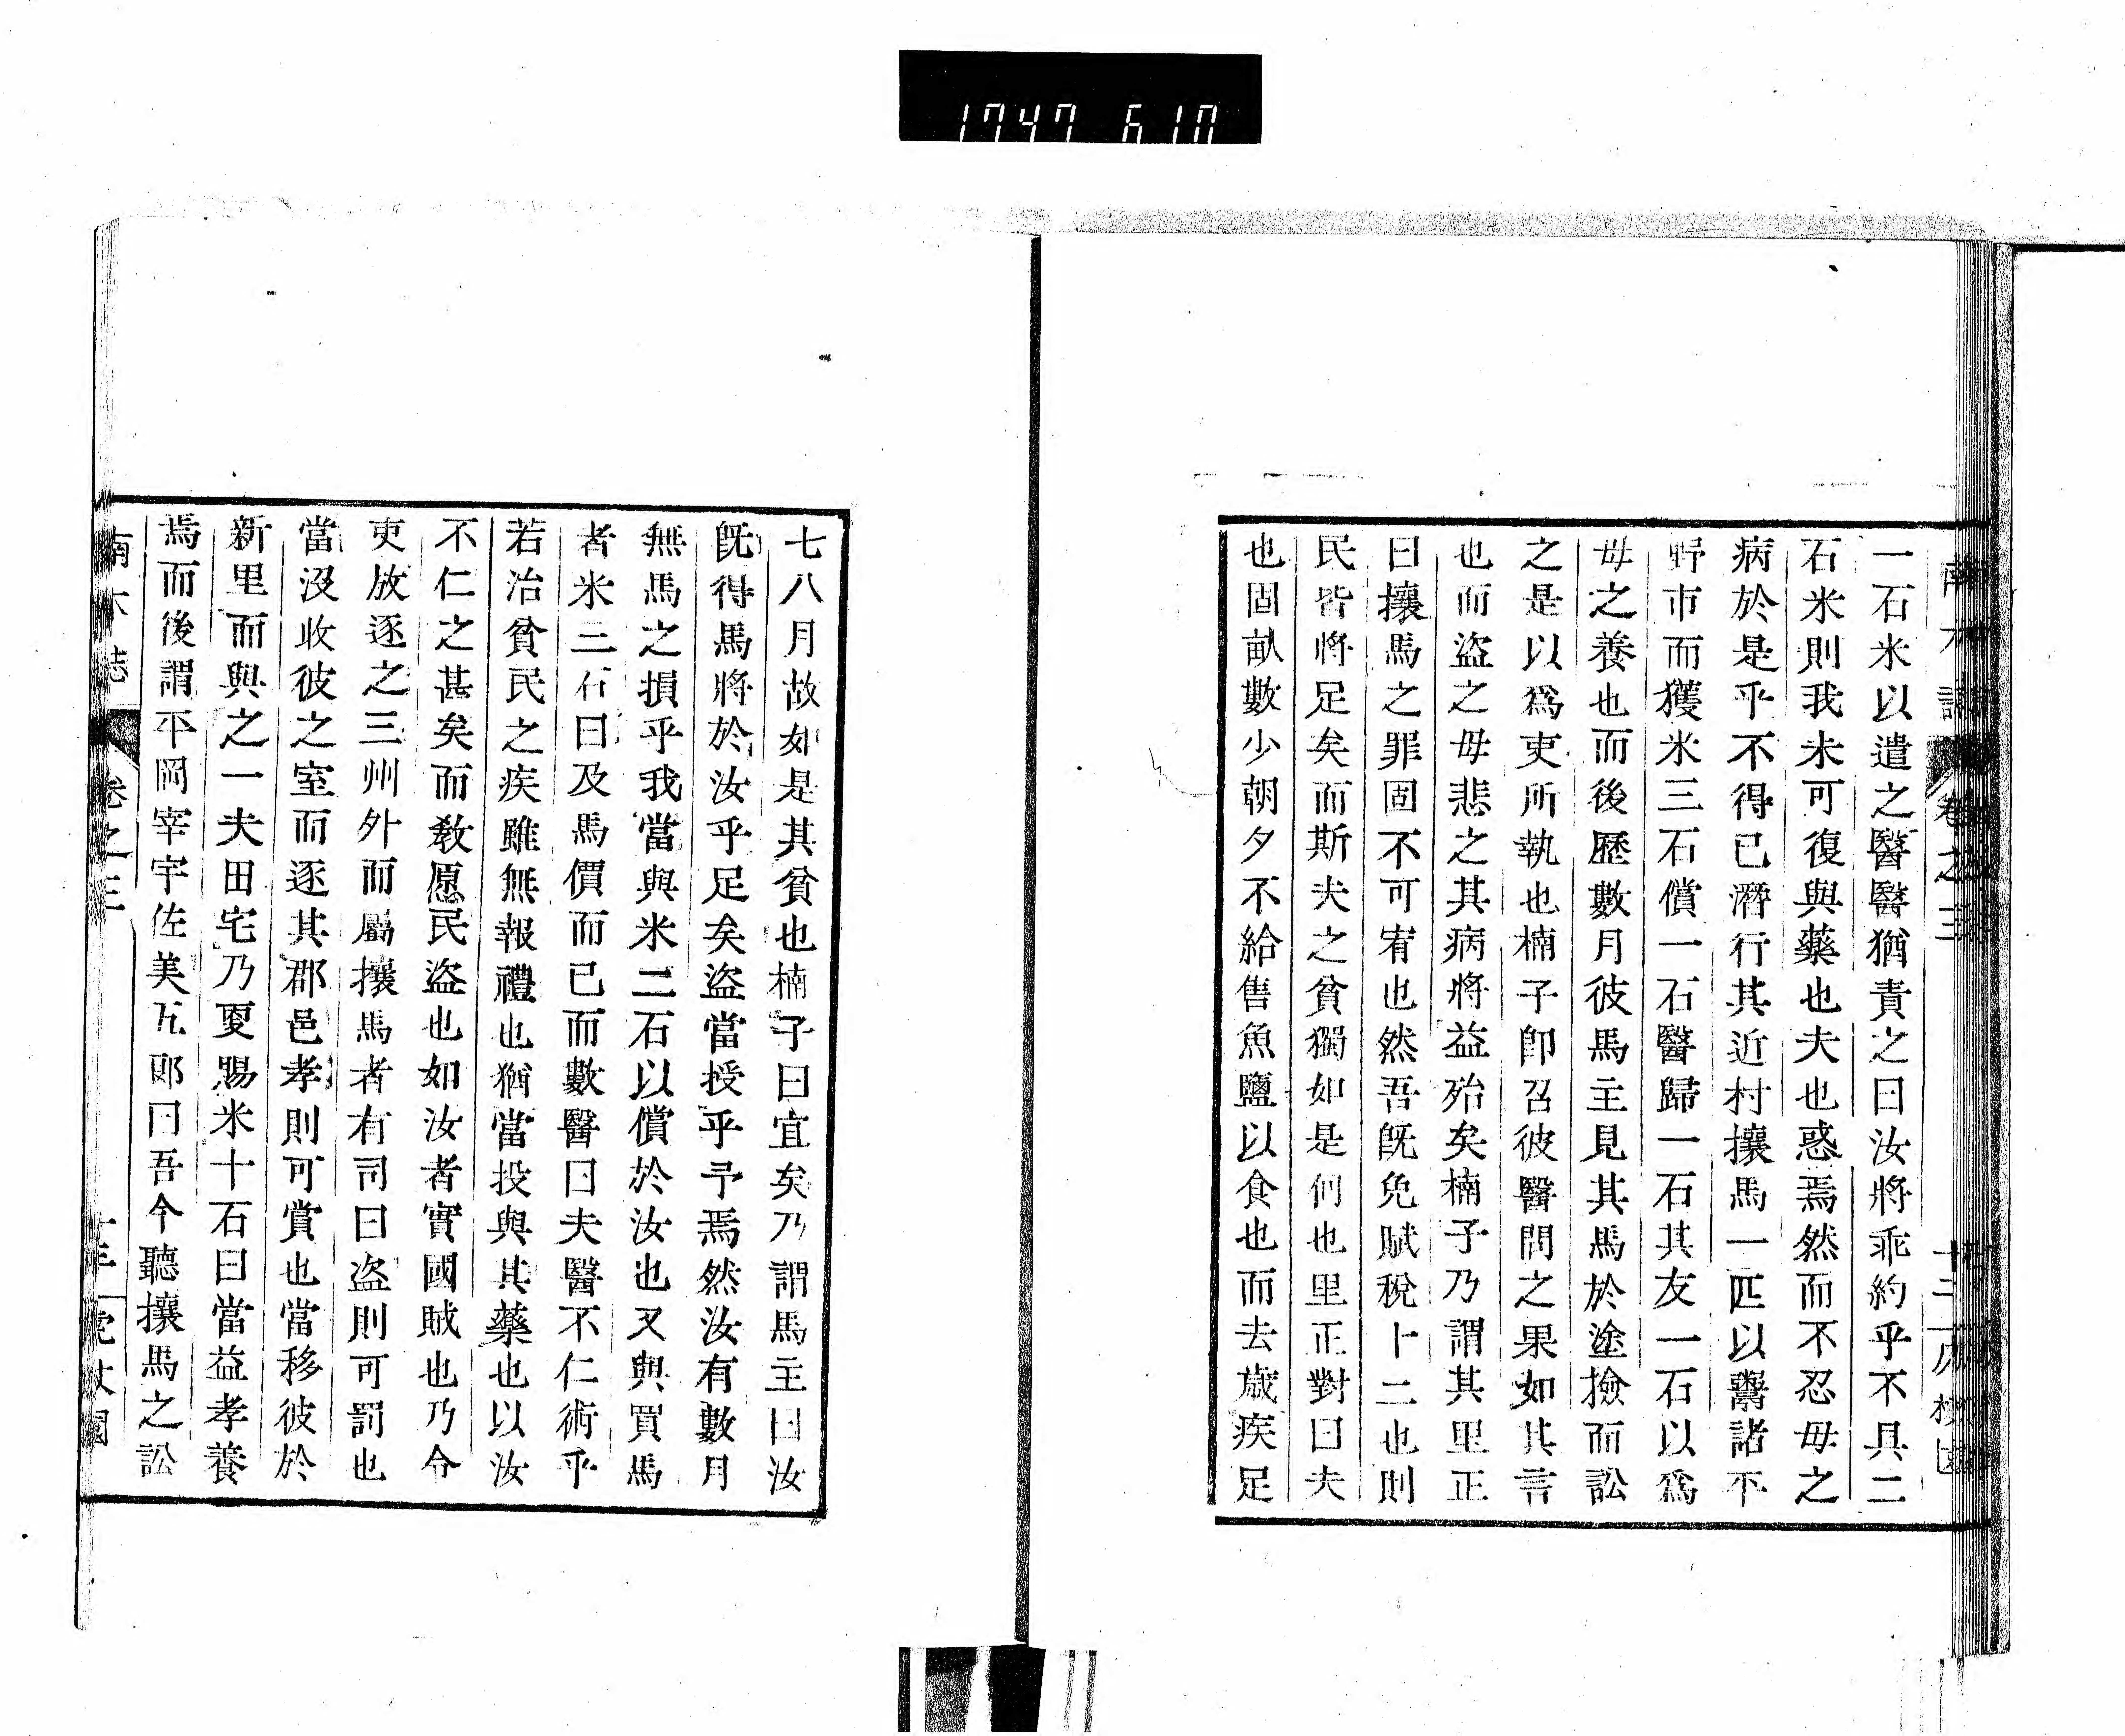 1747 610
一石米以遣之醫醫猶責之曰汝將乖約乎不具二
石米則我未可復與藥也夫也惑焉然而不忍毋之
病於是乎不得已濳行其近村攘馬一匹以鬻諸平
野市而獲米三石償一石醫歸一石其友一石以爲
毋之養也而後歷數月彼馬主見其馬於塗撿而訟
之是以爲吏所執也楠子卽召彼醫問之果如其言
也而盜之毋悲之其病將益殆矣楠子乃謂其里正
曰攘馬之罪固不可宥也然吾旣免賦稅十二也則
民皆將足矣而斯夫之貧獨如是何也里正對曰夫
也固畝數少朝夕不給售魚鹽以食也而去歲疾足
七八月故如是其貧也楠子曰宜矣乃謂馬主曰汝
旣得馬將於汝乎足矣盜當授乎予焉然汝有數月
無馬之損乎我當與米二石以償於汝也又與買馬
者米三石曰及馬價而已而數醫曰夫醫不仁術乎
若治貧民之疾雖無報禮也猶當投與其藥也以汝
不仁之甚矣而敎愿民盜也如汝者實國賊也乃令
吏放逐之三州外而屬攘馬者有司曰盜則可罰也
當沒收彼之室而逐其郡邑孝則可賞也當移彼於
新里而與之一夫田宅乃夏賜米十石曰當益孝養
焉而後謂平岡宰宇佐美五郎曰吾今聽攘馬之訟
南木誌 卷之三